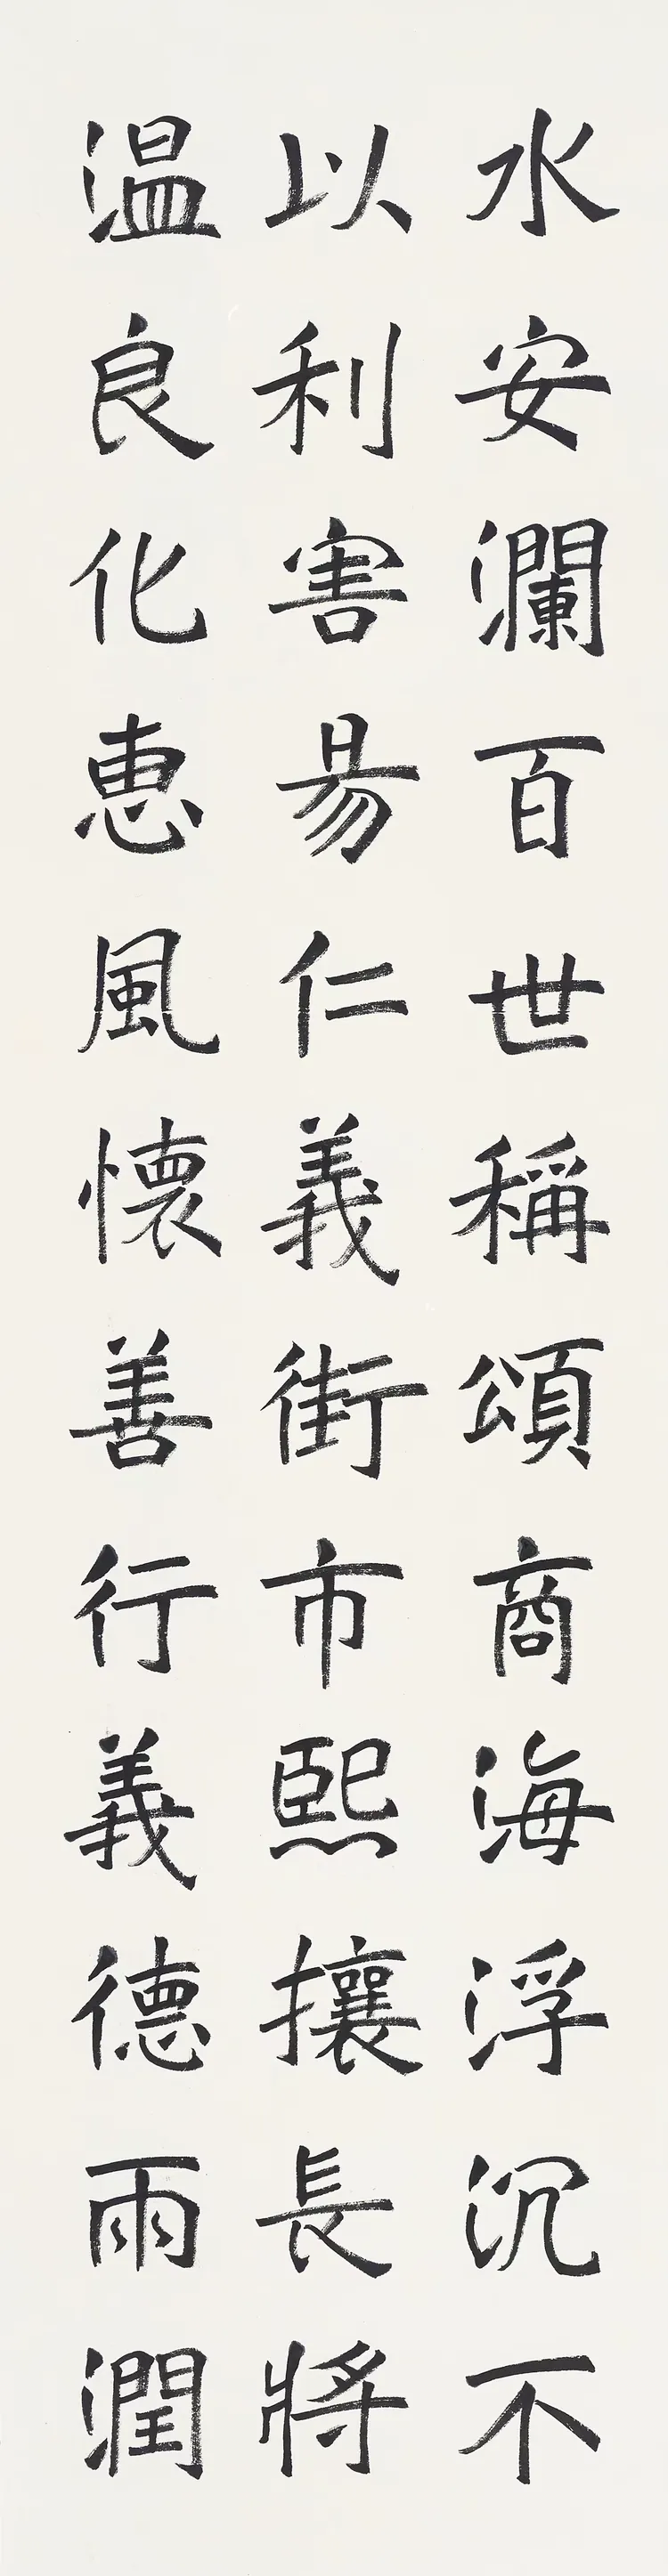 水安瀾百世稱頌商海浮沉不
以利害易仁義街市熙攘長將
温良化恵風懐善行義德雨潤